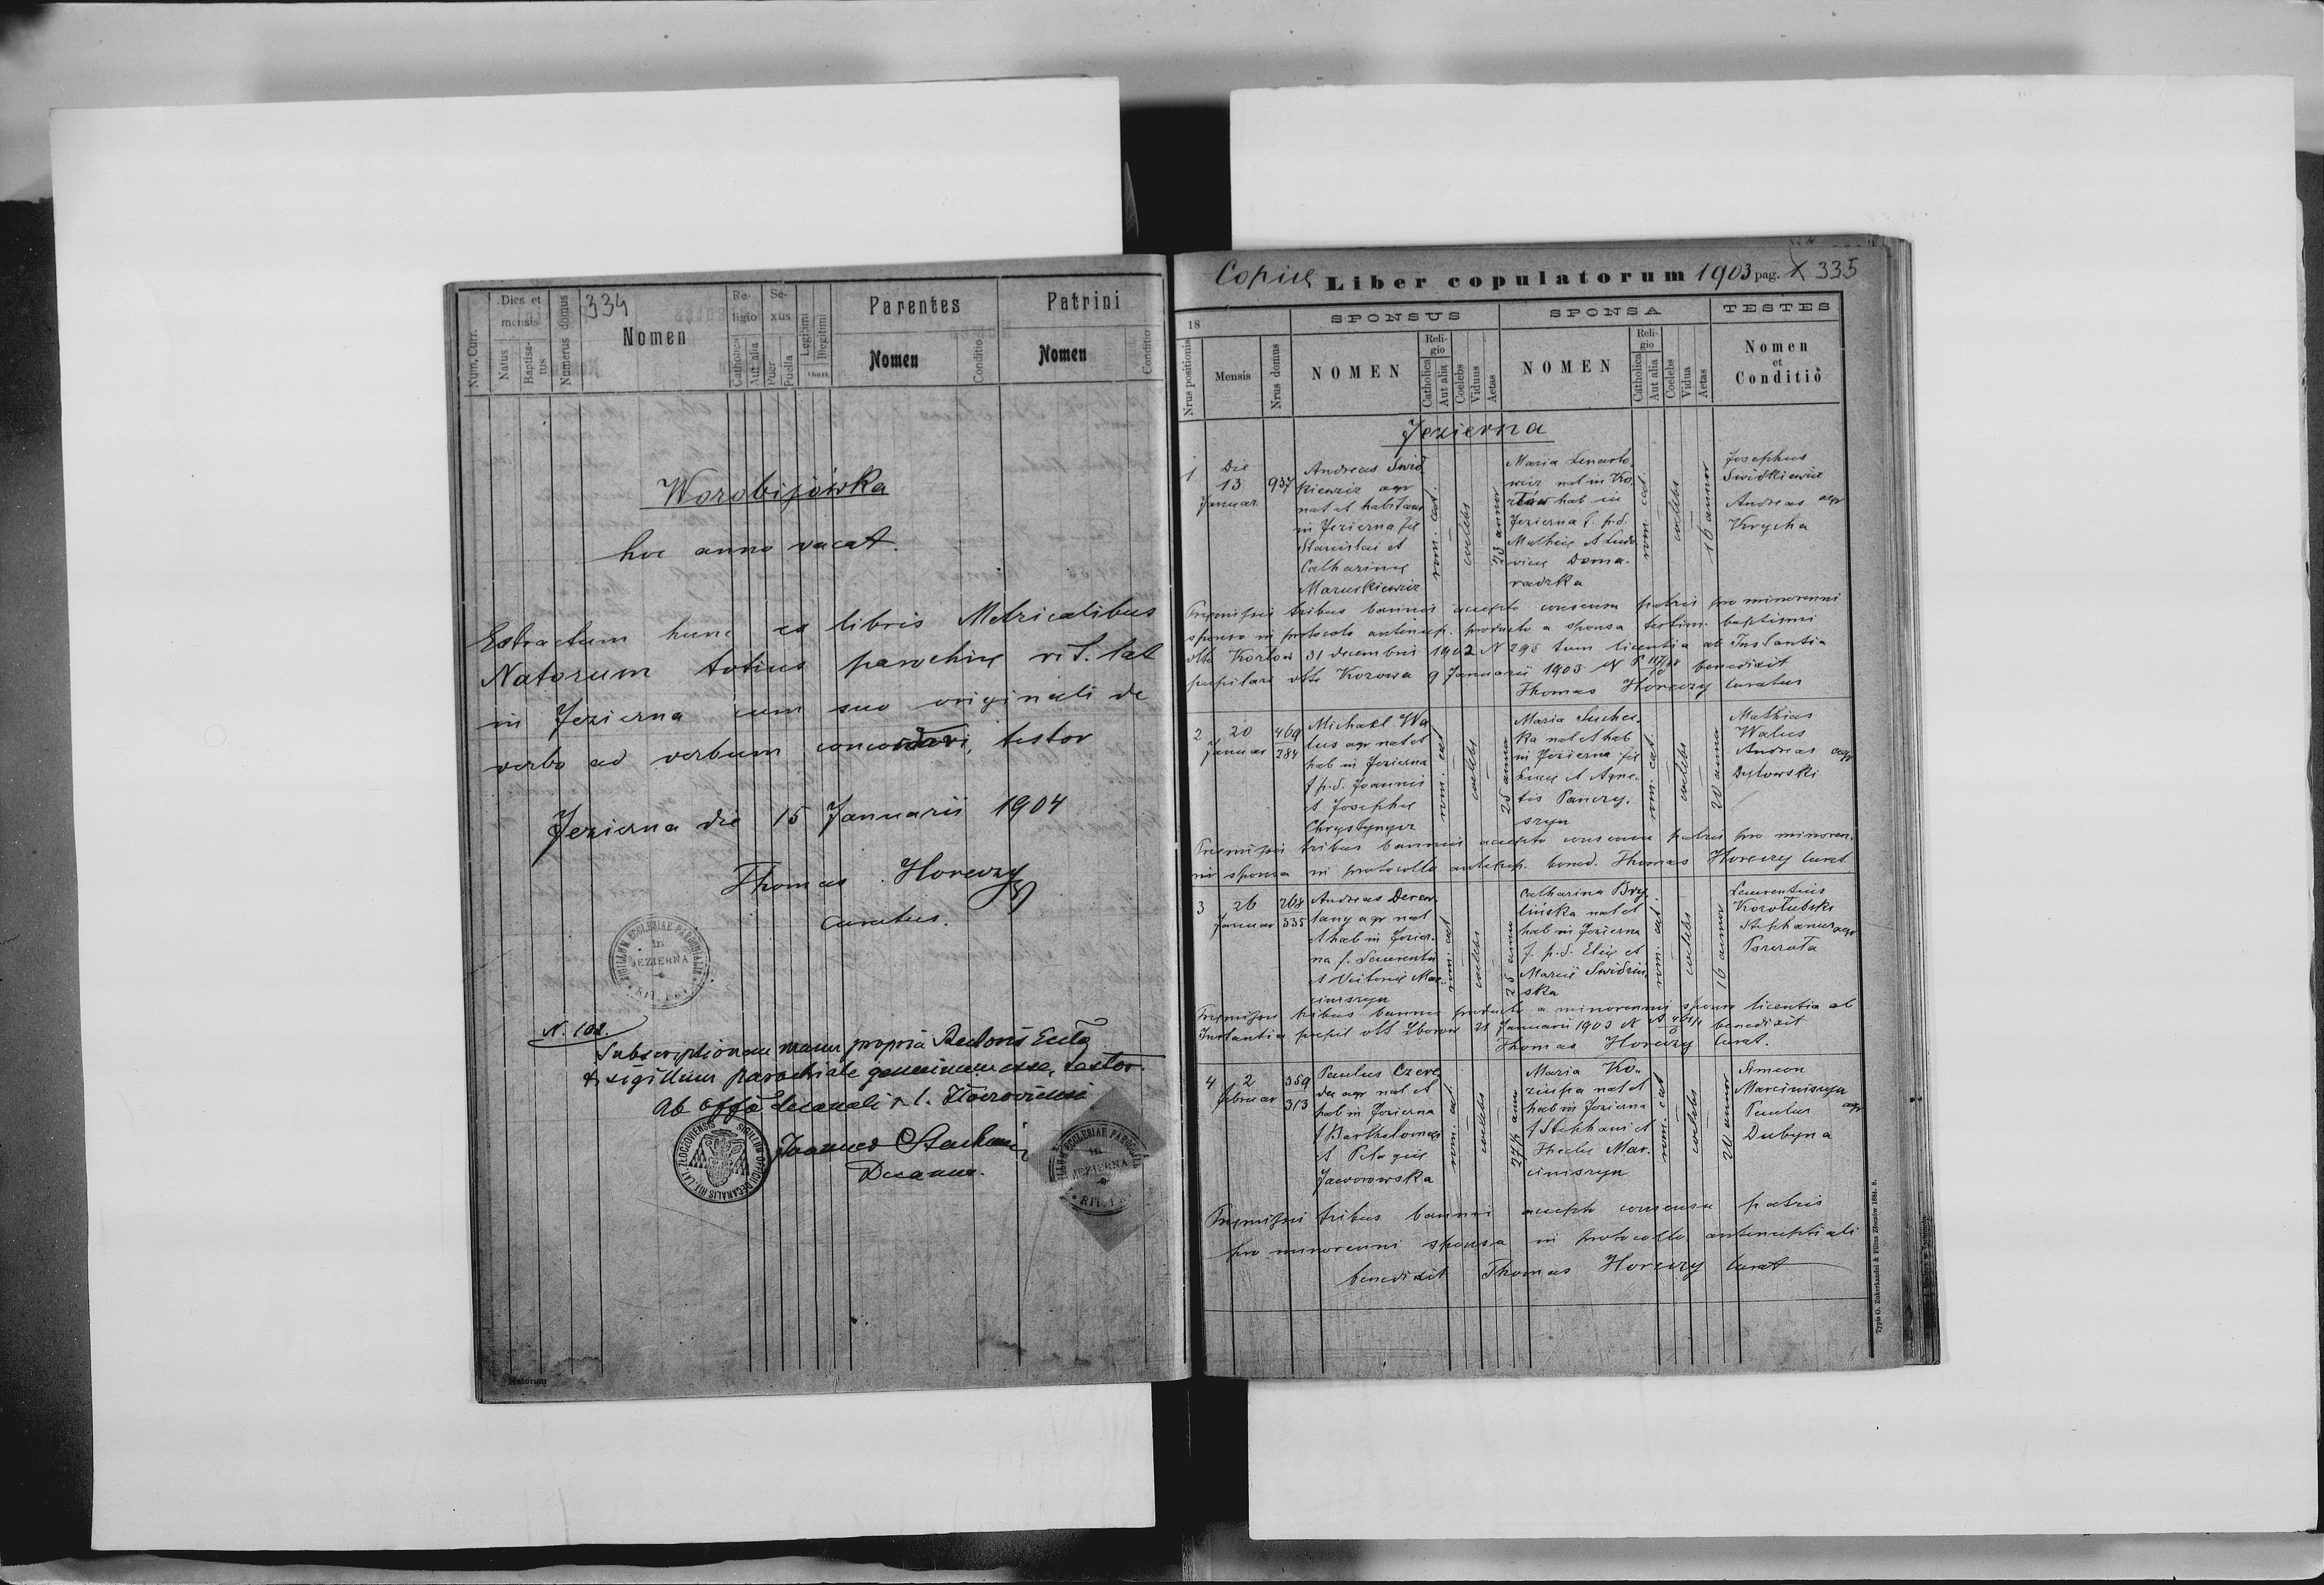 334
Num. Curr.
Dies et mensis
Natus
Baptisa-
tus
Numerus domus
Nomen
Re-
ligio
Catholica
Aut alia
Se-
xus
Puer
Puella
Legitimi
Illegitimi
Thori
Parentes
Nomen
Conditio
Patrini
Nomen
Conditio
Worobijówka
hoc anno vacat.
Extractum hunc ex libris Metricalibus
Natorum totius parochiæ rit. lat
in Jezierna cum suo originali de
verbo ad verbum concordari, testor
Jezierna die 15 Januarii 1904
Thomas Horeczy
curatus.
SIGILLUM ECCLESIAE PAROCHIALIS
in
JEZIERNA
RIT. LAT.
N. 102.
Subscriptionem manu propria Rectoris Ecclæ
& sigillum parochiale genuinum esse, testor.
Ab offo decanali r. l.
SIGILLUM OFFICII DECANALIS RIT. LAT. ZŁOCZOVIENSIS
Joannes
Decanus.
ECCLESIAE PAROCHIALIS
in
JEZIERNA
RIT.
Natorum
Copiæ Liber copulatorum 1903 pag. X 335
18
SPONSUS
SPONSA
TESTES
Nrus positionis
Mensis
Nrus domus
NOMEN
Reli-
gio
Catholica
Aut alia
Coelebs
Viduus
Aetas
NOMEN
Reli-
gio
Catholica
Aut alia
Coelebs
Vidua
Aetas
Nomen
et
Conditio
Jezierna
1
Die
13
Januar
937
Andreas Swid
kiewicz agr
nat et habitans
in Jezierna fil
Stanislai et
Catharinæ
Maruskiewicz
rom. cat.
coelebs
23 annor
Maria Lenarto
wicz nat in Ko
złów hab in
Jezierna f. p.d.
Mathiæ et Ludo
vicæ Doma
radzka
rom. cat.
coelebs
16 annor
Josephus
Swidkiewicz
Andreas agr
Krycha
Præmissis tribus bannis accepto consensu patris pro minorenni
sponso in protocolo antenup. producto a sponsa testim. baptismi
dtto Kozłow 31 decembris 1902 N 295 tum licentia ab Instantia
pupilare dtto Kozowa 9 Januarii 1903 N benedixit
Thomas Horeczy curatus
2
20
Januar
469
284
Michael Wa
lus agr nat et
hab in Jezierna
f p.d. Joannis
et Josephæ
Chrystynycz
rom. cat
coelebs
25 annor
Maria Suchec
ka nat et hab
in Jezierna fil
Lucæ et Agne
tis Panczy
szyn
rom. cat.
coelebs
20 annor
Mathias
Walus
Andreas agr
Dylowski
Præmissis tribus bannis accepto consensu patris pro minoren
ni sponsa in protocollo antenup. bened. Thomas Horeczy curat
3
26
Januar
268
335
Andreas Deren
lang agr nat
et hab in Jezier
na f. Laurentii
et Victoriæ Mar
ciniszyn
rom. cat
coelebs
25 annor
Catharina Bry
lińska nat et
hab in Jezierna
f. p.d. Eliæ et
Mariæ Swidzin
ska
rom. cat.
coelebs
16 annor
Laurentius
Korołubski
Stephanus agr
Parzota
Præmissis tribus bannis producto a minorenni sponsa licentia ab
Instantia pupil dtt Zborow 21 Januarii 1903 N benedixit
Thomas Horeczy curat.
4
2
Februar
359
313
Paulus Czere
da agr nat et
hab in Jezierna
f Bartholomæi
et Pelagiæ
Jaworowska
rom. cat.
coelebs
27½ ann
Maria Ko
ziupa nat et
hab in Jezierna
f Stephani et
Theclæ Mar
ciniszyn
rom. cat
coelebs
20 annor
Simeon
Marciniszyn
Paulus agr
Dubyna
Præmissis tribus bannis accepto consensu patris
pro minorenni sponsa in protocollo antenuptiali
benedixit Thomas Horeczy curat
Typis O. Zukerkandel & Filius Złoczów 1884. 8.